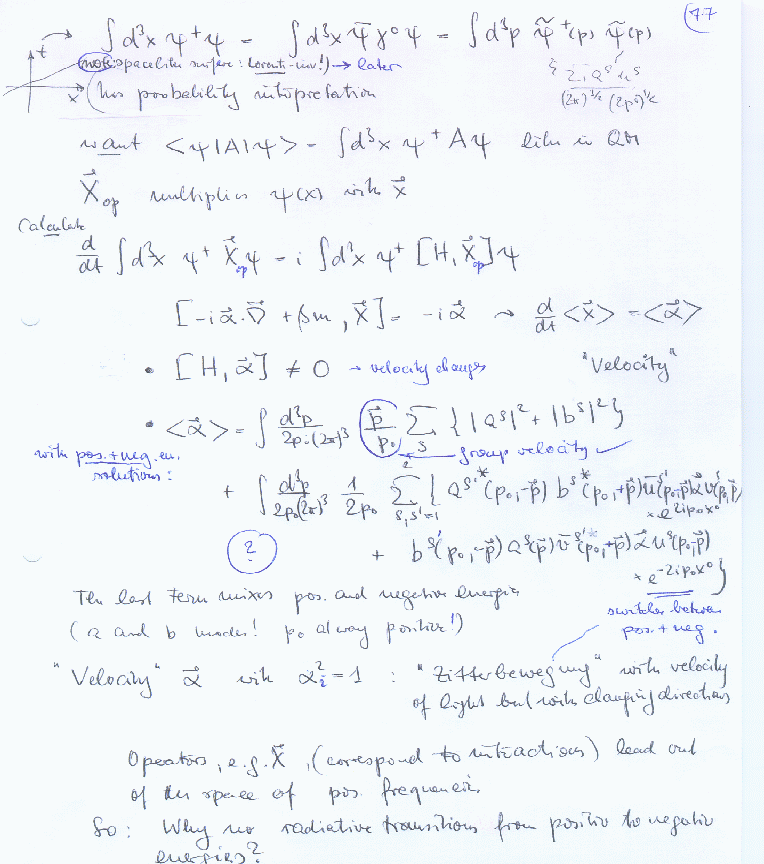 4.7
∫d³x ψ⁺ψ = ∫d³x ψ̄ γ⁰ ψ = ∫d³p ψ̃⁺(p) ψ̃(p)
t x
(not: spacelike surface: Lorentz-inv!) → later
Σ a^s u^s / (2π)^{3/2} (2p₀)^{1/2}
has probability interpretation
want <ψ|A|ψ> = ∫d³x ψ⁺Aψ like in QM
X⃗_op multiplies ψ(x) with x⃗
Calculate
d/dt ∫d³x ψ⁺ X⃗_op ψ = i ∫d³x ψ⁺ [H, X⃗_op] ψ
[-iα⃗·∇⃗ + βm, X⃗] = -iα⃗ → d/dt <x⃗> = <α⃗>
• [H, α⃗] ≠ 0 → velocity changes "Velocity"
• <α⃗> = ∫ d³p/2p₀(2π)³ p⃗/p₀ Σ_s { |a^s|² + |b^s|² }
with pos. + neg. en. solutions: group velocity ✓
+ ∫ d³p/2p₀(2π)³ 1/2p₀ Σ_{s,s'=1}^2 { a^{s'*}(p₀,-p⃗) b^{s*}(p₀,+p⃗) ū^{s'}(p₀,-p⃗) α⃗ v^s(p₀,p⃗)
× e^{2ip₀x⁰}
? + b^{s'}(p₀,-p⃗) a^s(p⃗) v̄^{s'}(p₀,+p⃗) α⃗ u^s(p₀,p⃗)
× e^{-2ip₀x⁰} }
The last term mixes pos. and negative energies
switches between
(a and b modes! p₀ always positive!)
pos. + neg.
"Velocity" α⃗ with α_i² = 1 : "Zitterbewegung" with velocity
of light but with changing directions
Operators, e.g. X⃗, (correspond to interactions) lead out
of the space of pos. frequencies
So: Why no radiative transitions from positiv to negativ
energies?